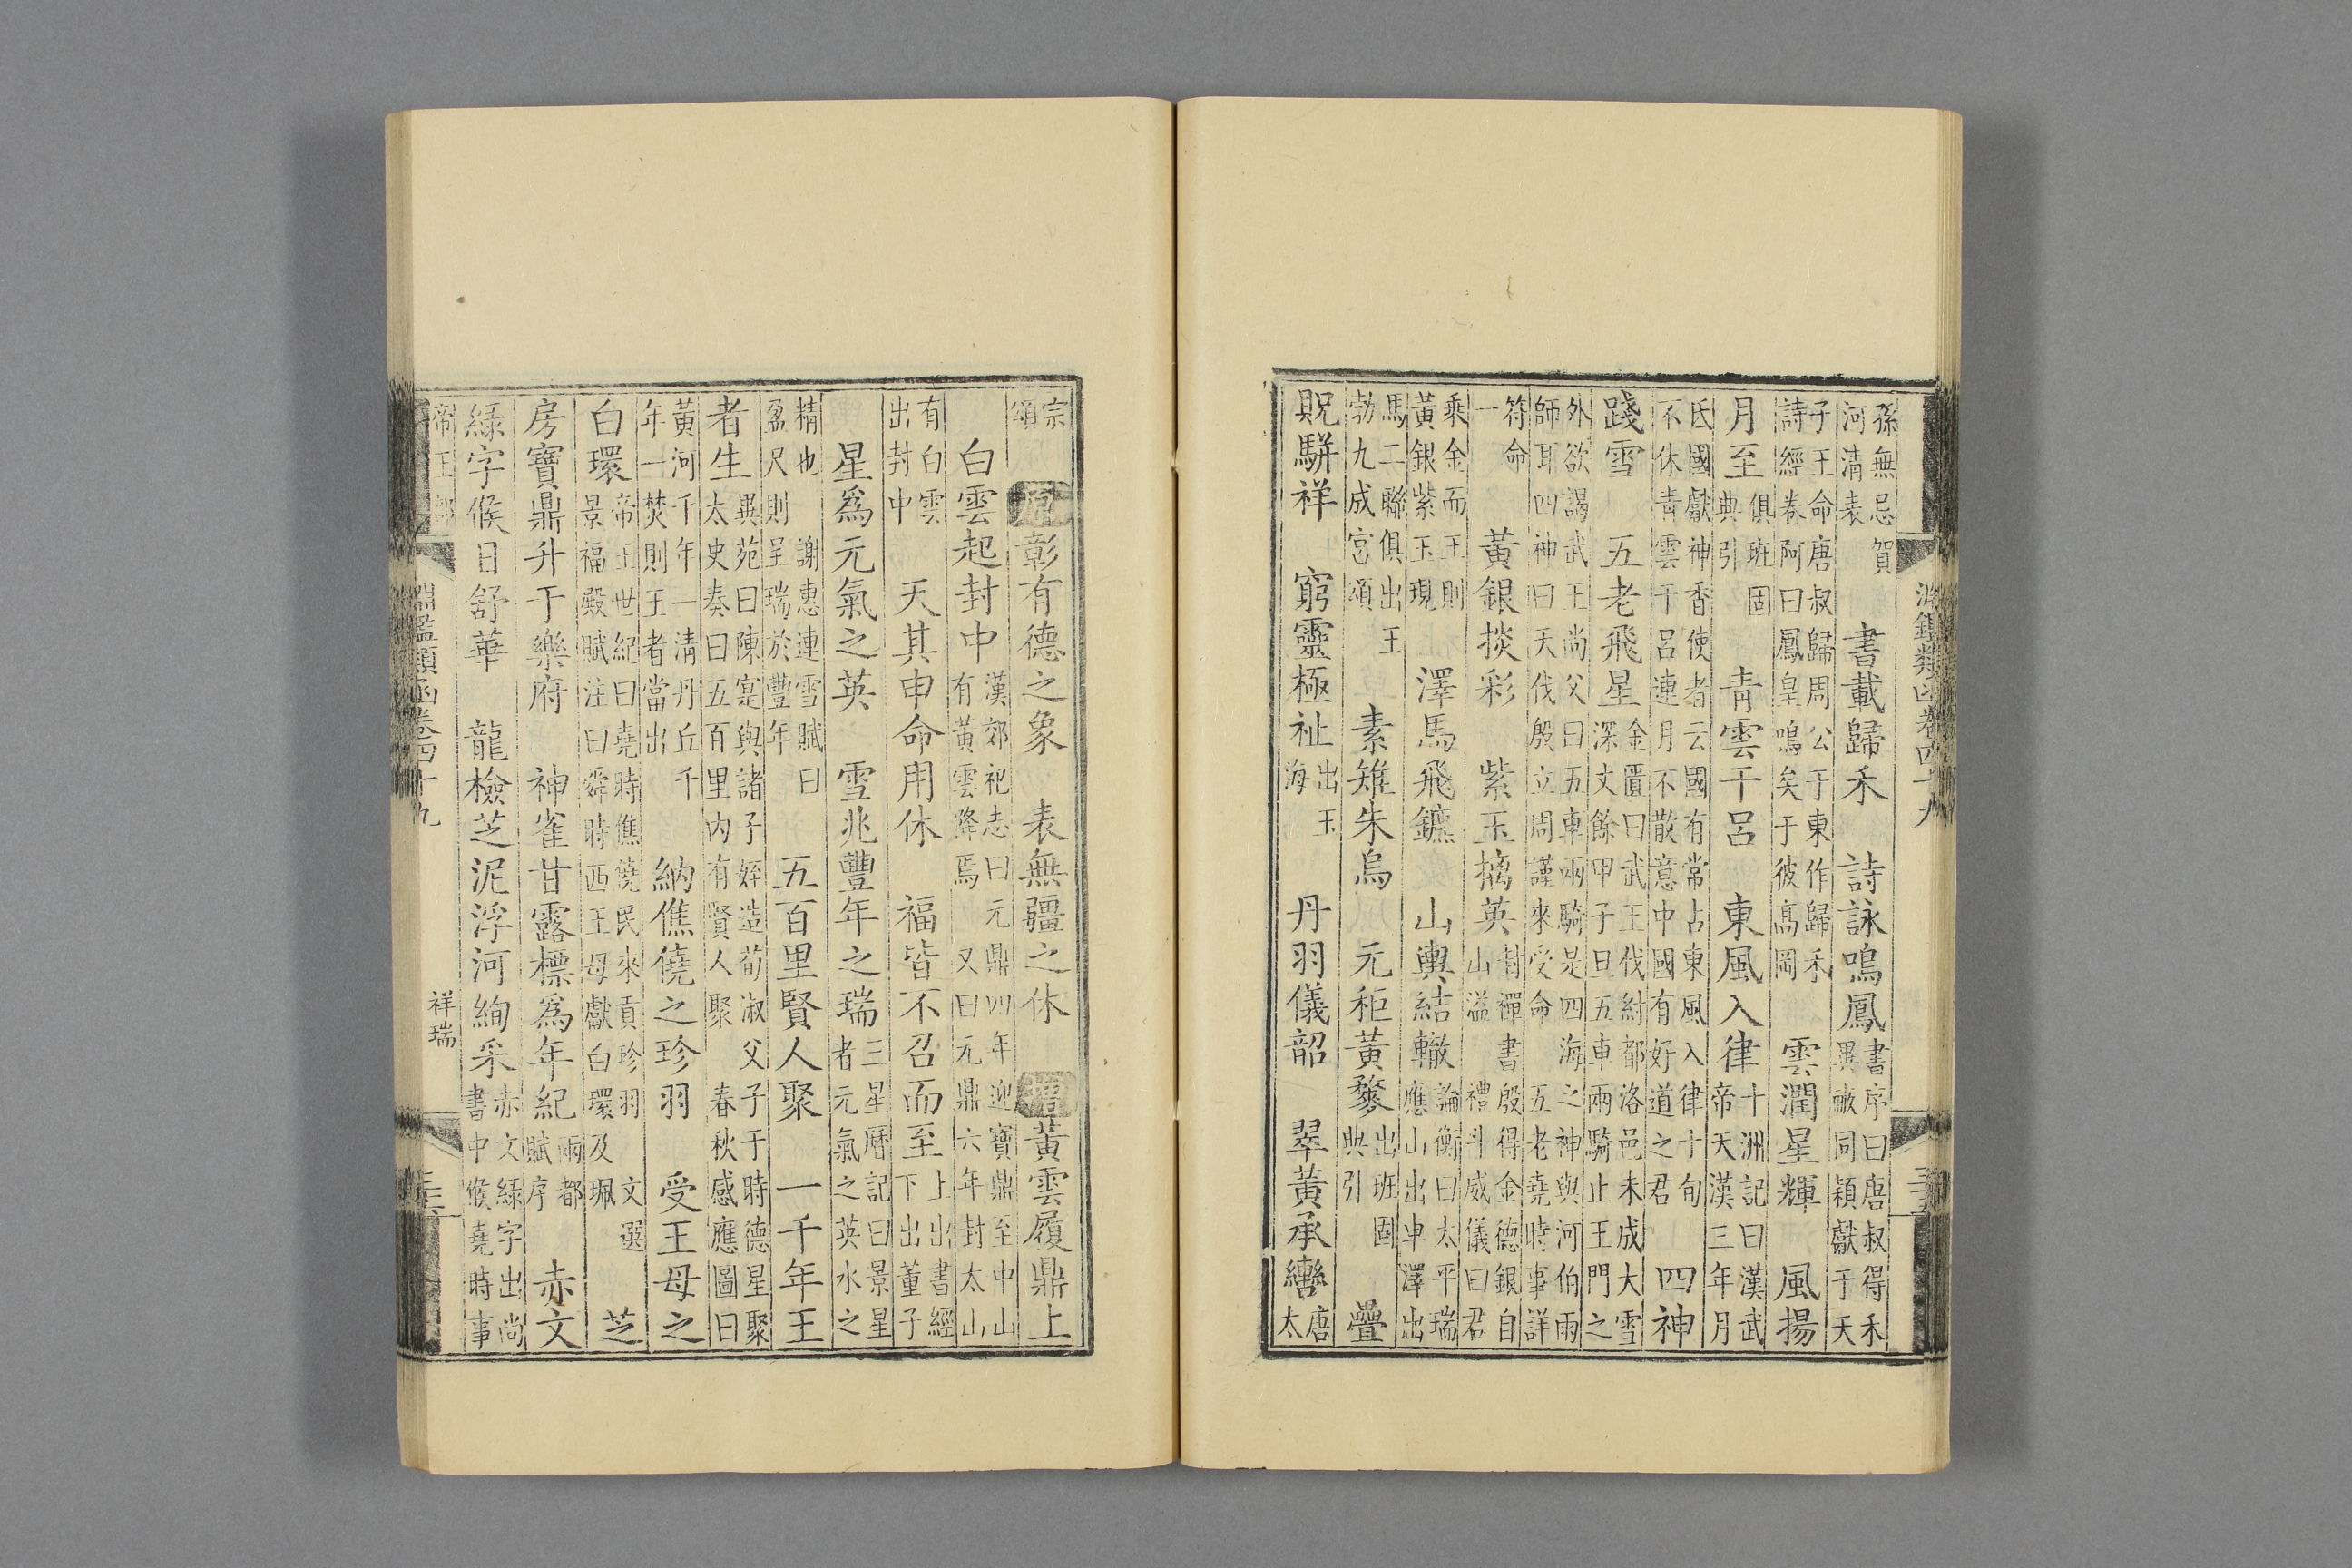 淵鑑類函卷四十九
孫無忌賀河清表 書載歸禾 詩詠鳴鳳書序曰唐叔得禾異畝同穎獻于天
子王命唐叔歸周公于東作歸禾詩經卷阿曰鳳皇鳴矣于彼高岡 雲潤星輝 風揚
月至俱班固典引 青雲干呂 東風入律十洲記曰漢武帝天漢三年月
氏國獻神香使者云國有常占東風入律十旬不休青雲干呂連月不散意中國有好道之君 四神
踐雪 五老飛星金匱曰武王伐紂都洛邑未成大雪深丈餘甲子旦五車兩騎止王門之
外欲謁武王尚父曰五車兩騎是四海之神與河伯雨師耳四神曰天伐殷立周謹來受命 五老堯時事詳
符命一 黃銀掞彩 紫玉摛英封禪書殷得金德銀自山溢 禮斗威儀曰君
乘金而王則黃銀紫玉現 澤馬飛鑣 山輿結轍論衡曰太平瑞應山出車澤出
馬二聯俱出王勃九成宮頌 素雉朱烏 元秬黃䅘出班固典引 疊
貺駢祥 窮靈極祉出玉海 丹羽儀韶 翠黃承轡唐太
宗頌 原彰有德之象 表無疆之休 增黃雲履鼎上
白雲起封中漢郊祀志曰元鼎四年迎寶鼎至中山有黃雲降焉 又曰元鼎六年封太山
有白雲出封中 天其申命用休 福皆不召而至上出書經下出董子
星爲元氣之英 雪兆豐年之瑞三星曆記曰景星者元氣之英水之
精也 謝惠連雪賦曰盈尺則呈瑞於豐年 五百里賢人聚 一千年王
者生異苑曰陳寔與諸子姪造荀淑父子于時德星聚太史奏曰五百里內有賢人聚 春秋感應圖曰
黃河千年一清丹丘千年一焚則王者當出 納僬僥之珍羽 受王母之
白環帝王世紀曰堯時僬僥民來貢珍羽 文選景福殿賦注曰舜時西王母獻白環及珮 芝
房寶鼎升于樂府 神雀甘露標爲年紀兩都賦序 赤文
綠字候日舒華 龍檢芝泥浮河絢采赤文綠字出尚書中候堯時事
帝王部
淵鑑類函卷四十九
祥瑞